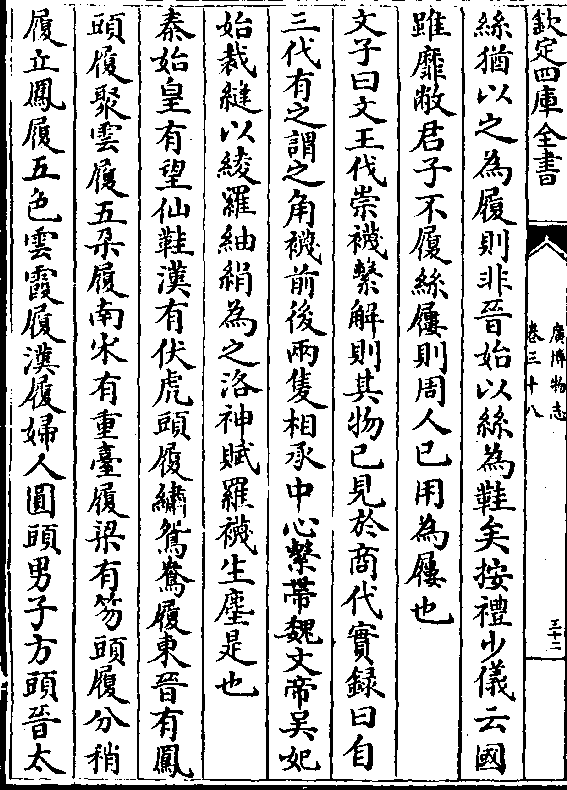 欽定四庫全書
廣博物志
卷三十八
三十二
絲猶以之為履則非晉始以絲為鞋矣按禮少儀云國
雖靡敝君子不履絲屨則周人已用為屨也
文子曰文王伐崇襪繫解則其物已見於商代實録曰自
三代有之謂之角襪前後兩隻相承中心繫帶魏文帝吴妃
始裁縫以綾羅紬絹為之洛神賦羅襪生塵是也
秦始皇有望仙鞋漢有伏虎頭履繡鴛鴦履東晉有鳳
頭履聚雲履五朶履南宋有重臺履梁有笏頭履分稍
履立鳳履五色雲霞履漢履婦人圓頭男子方頭晉太